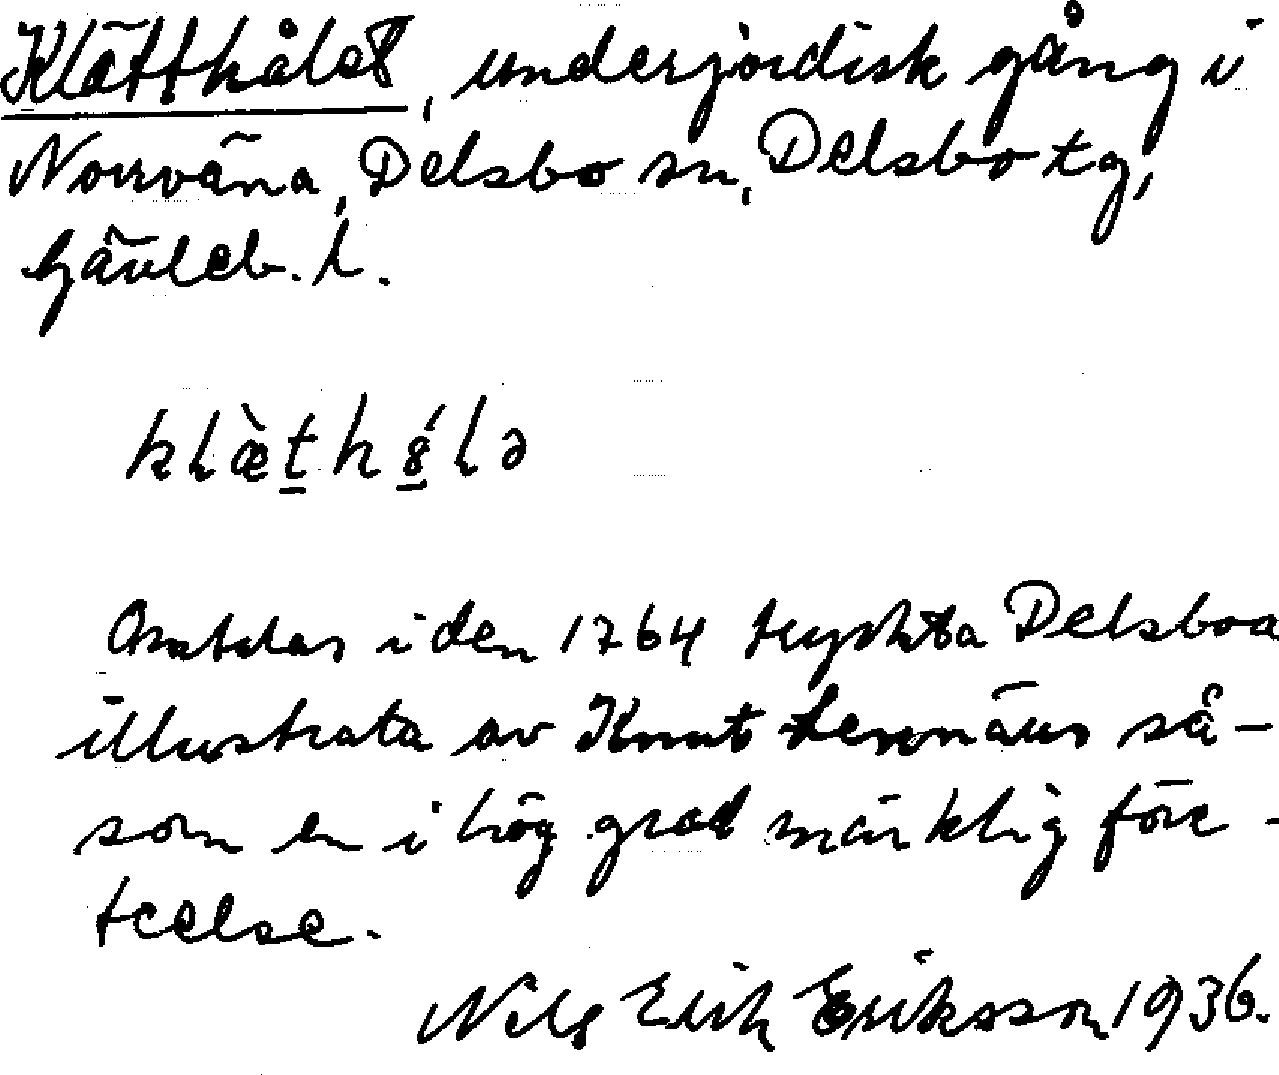 Klätthålet, underjordisk gång i
Norrväna, Delsbo sn, Delsbo tg,
Gävleb. l.
klæ̀t̲hǵ̲lə
Omtalas i den 1764 tryckta Delsboa
illustrata av Knut Lenæus så-
som en i hög grad märklig före-
teelse.
Nils Erik Eriksson 1936.